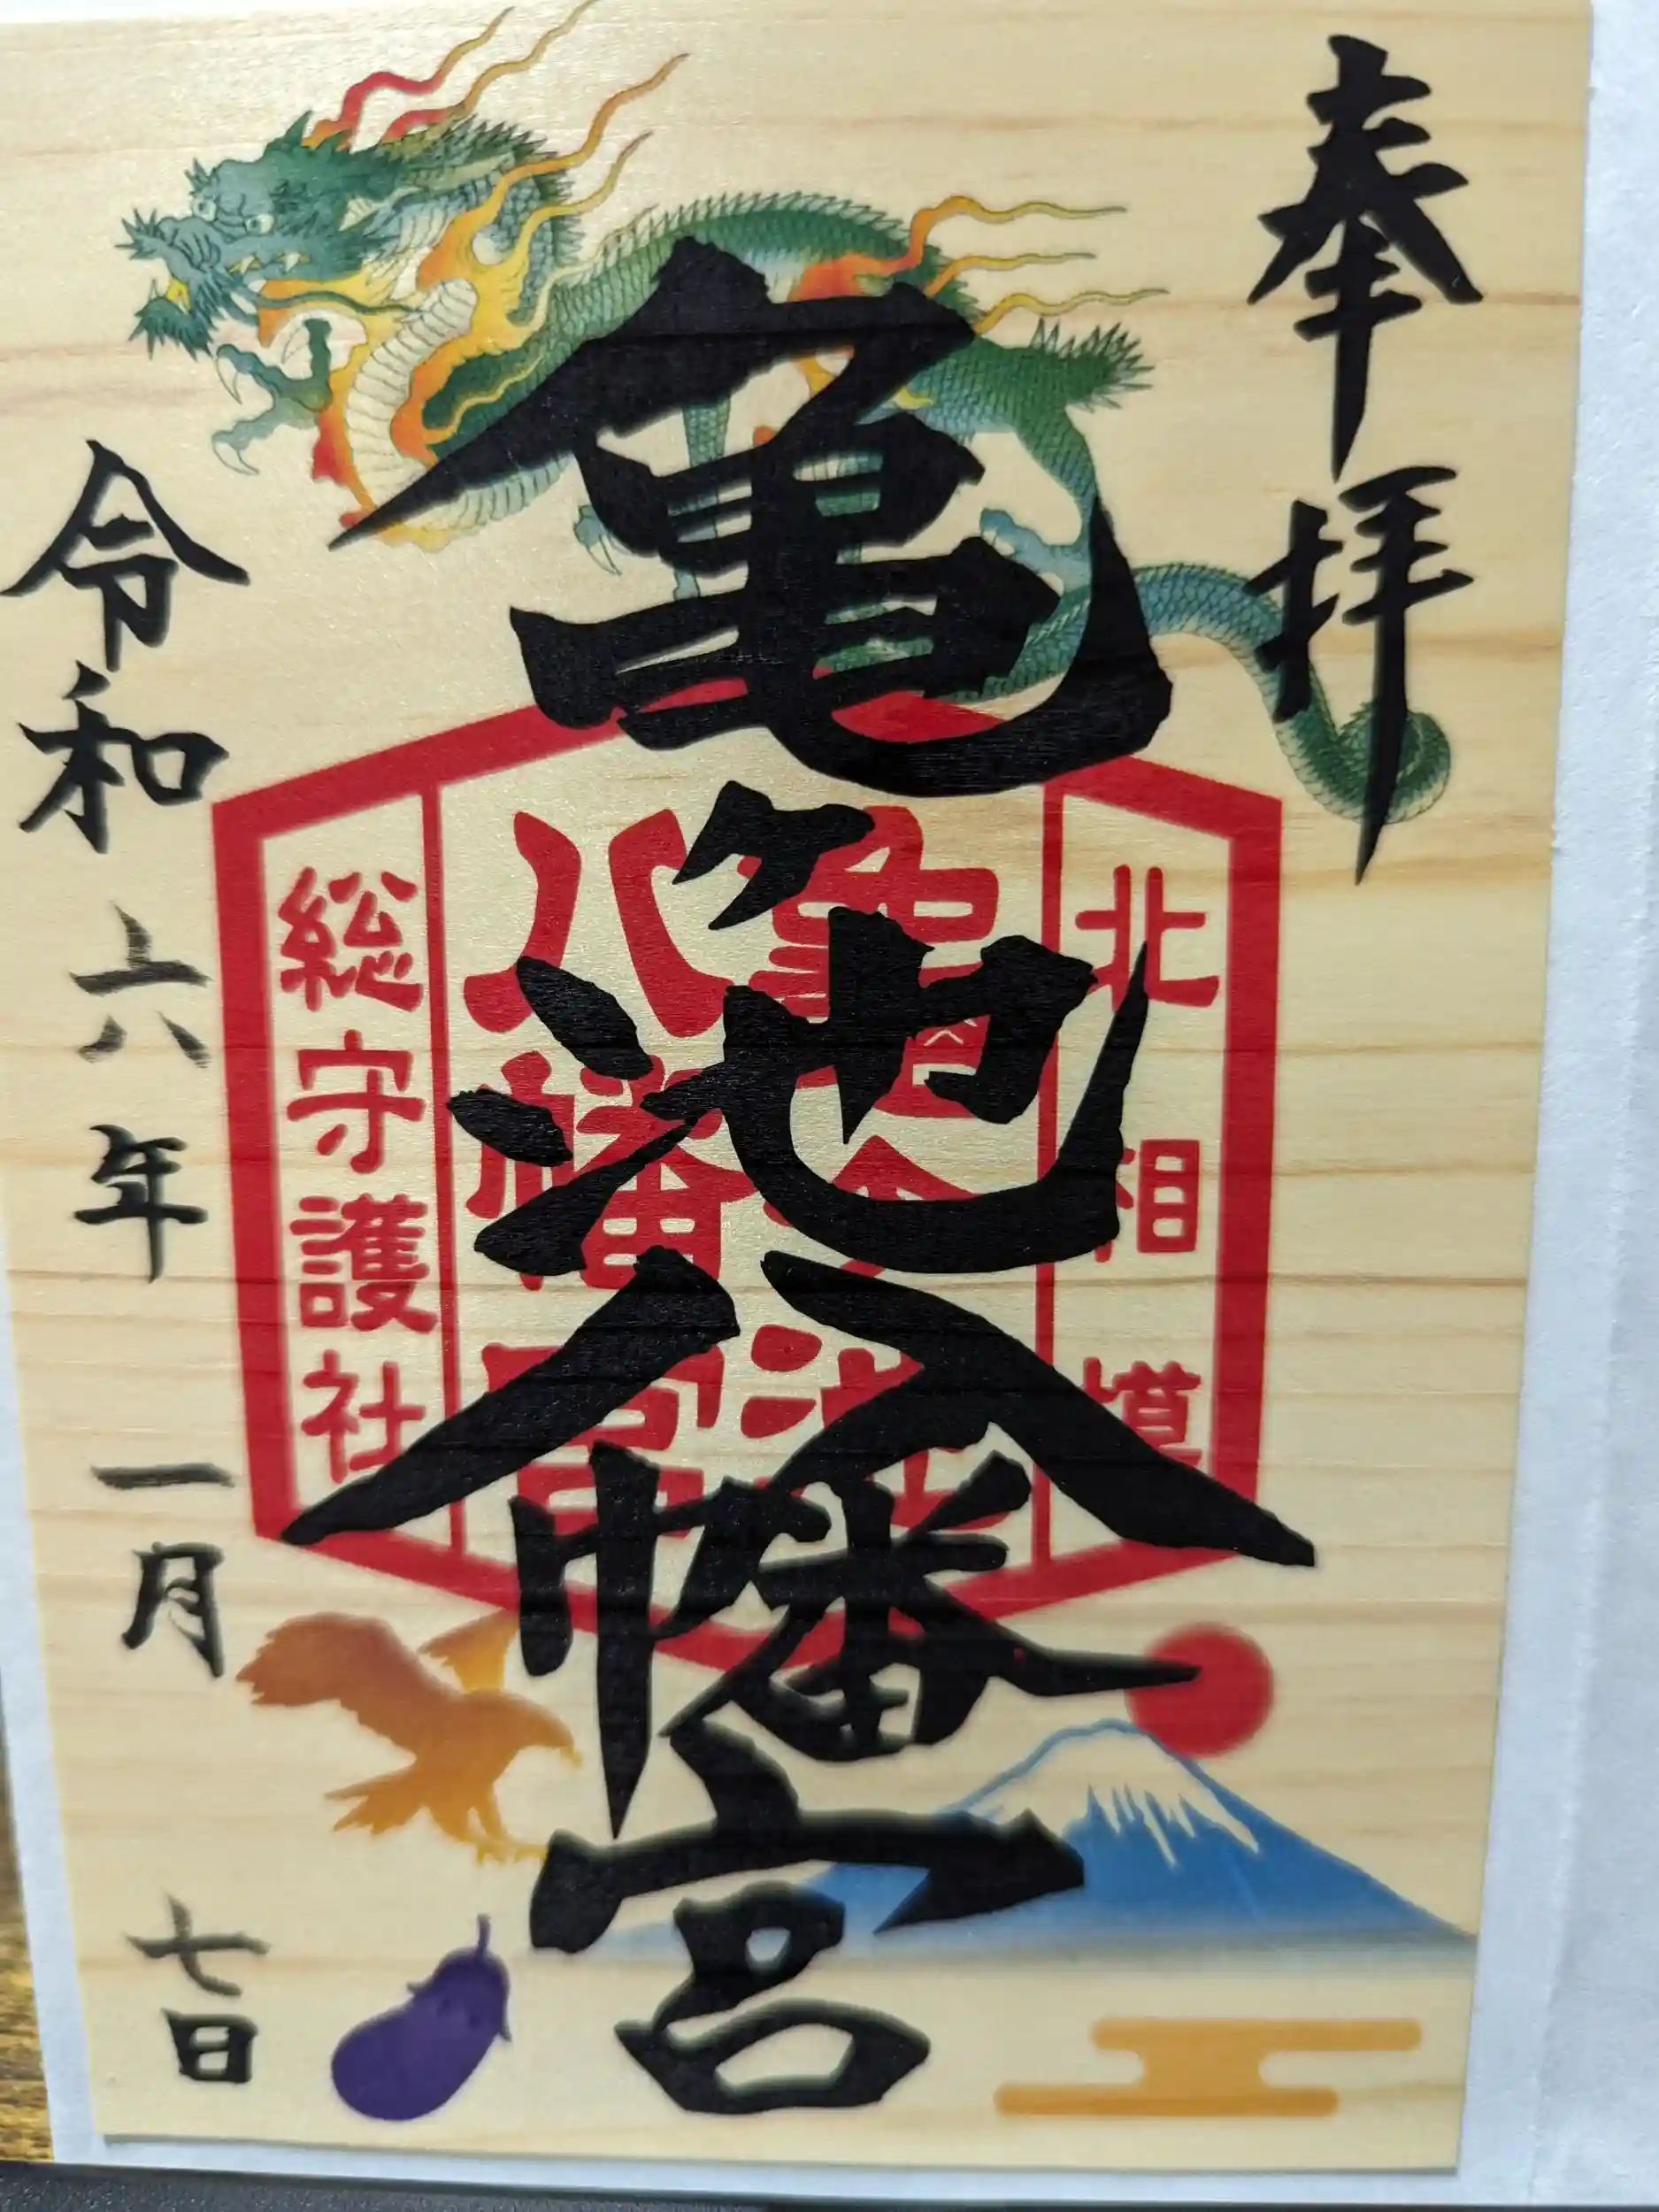 奉拝
亀ヶ池八幡宮
北相模
亀ヶ池
八幡宮
総守護社
令和六年一月七日